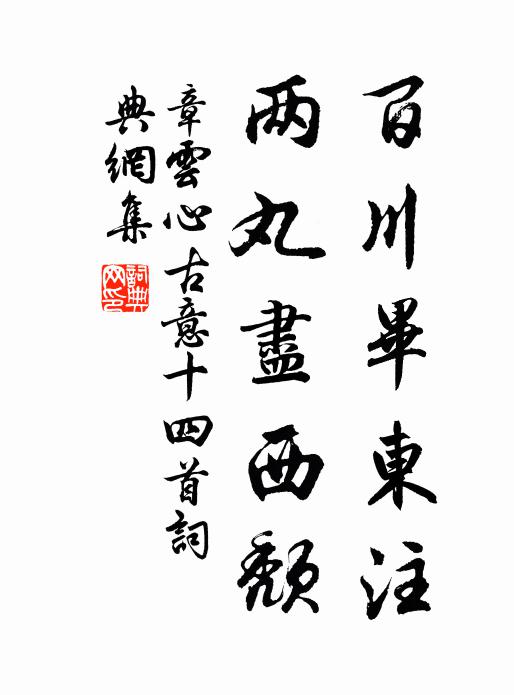 百川畢東注
两丸盡西頹
章雲心古意十四首詞
典網集
詞典网印